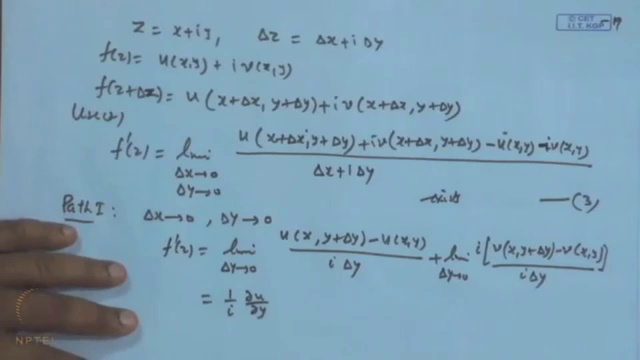 © CET
I.I.T. KGP
z = x+iy, Δz = Δx+iΔy
f(z) = u(x,y) + i v(x,y)
f(z+Δz) = u(x+Δx, y+Δy) + i v(x+Δx, y+Δy)
f'(z) = lim Δx→0 Δy→0 u(x+Δx, y+Δy) + i v(x+Δx, y+Δy) - u(x,y) - i v(x,y) / Δx + iΔy
exists —(3)
Path I : Δx→0 , Δy→0
f'(z) = lim Δy→0 u(x, y+Δy) - u(x,y) / iΔy + lim Δy→0 i[v(x, y+Δy) - v(x,y)] / iΔy
= 1/i ∂u/∂y
NPTEL